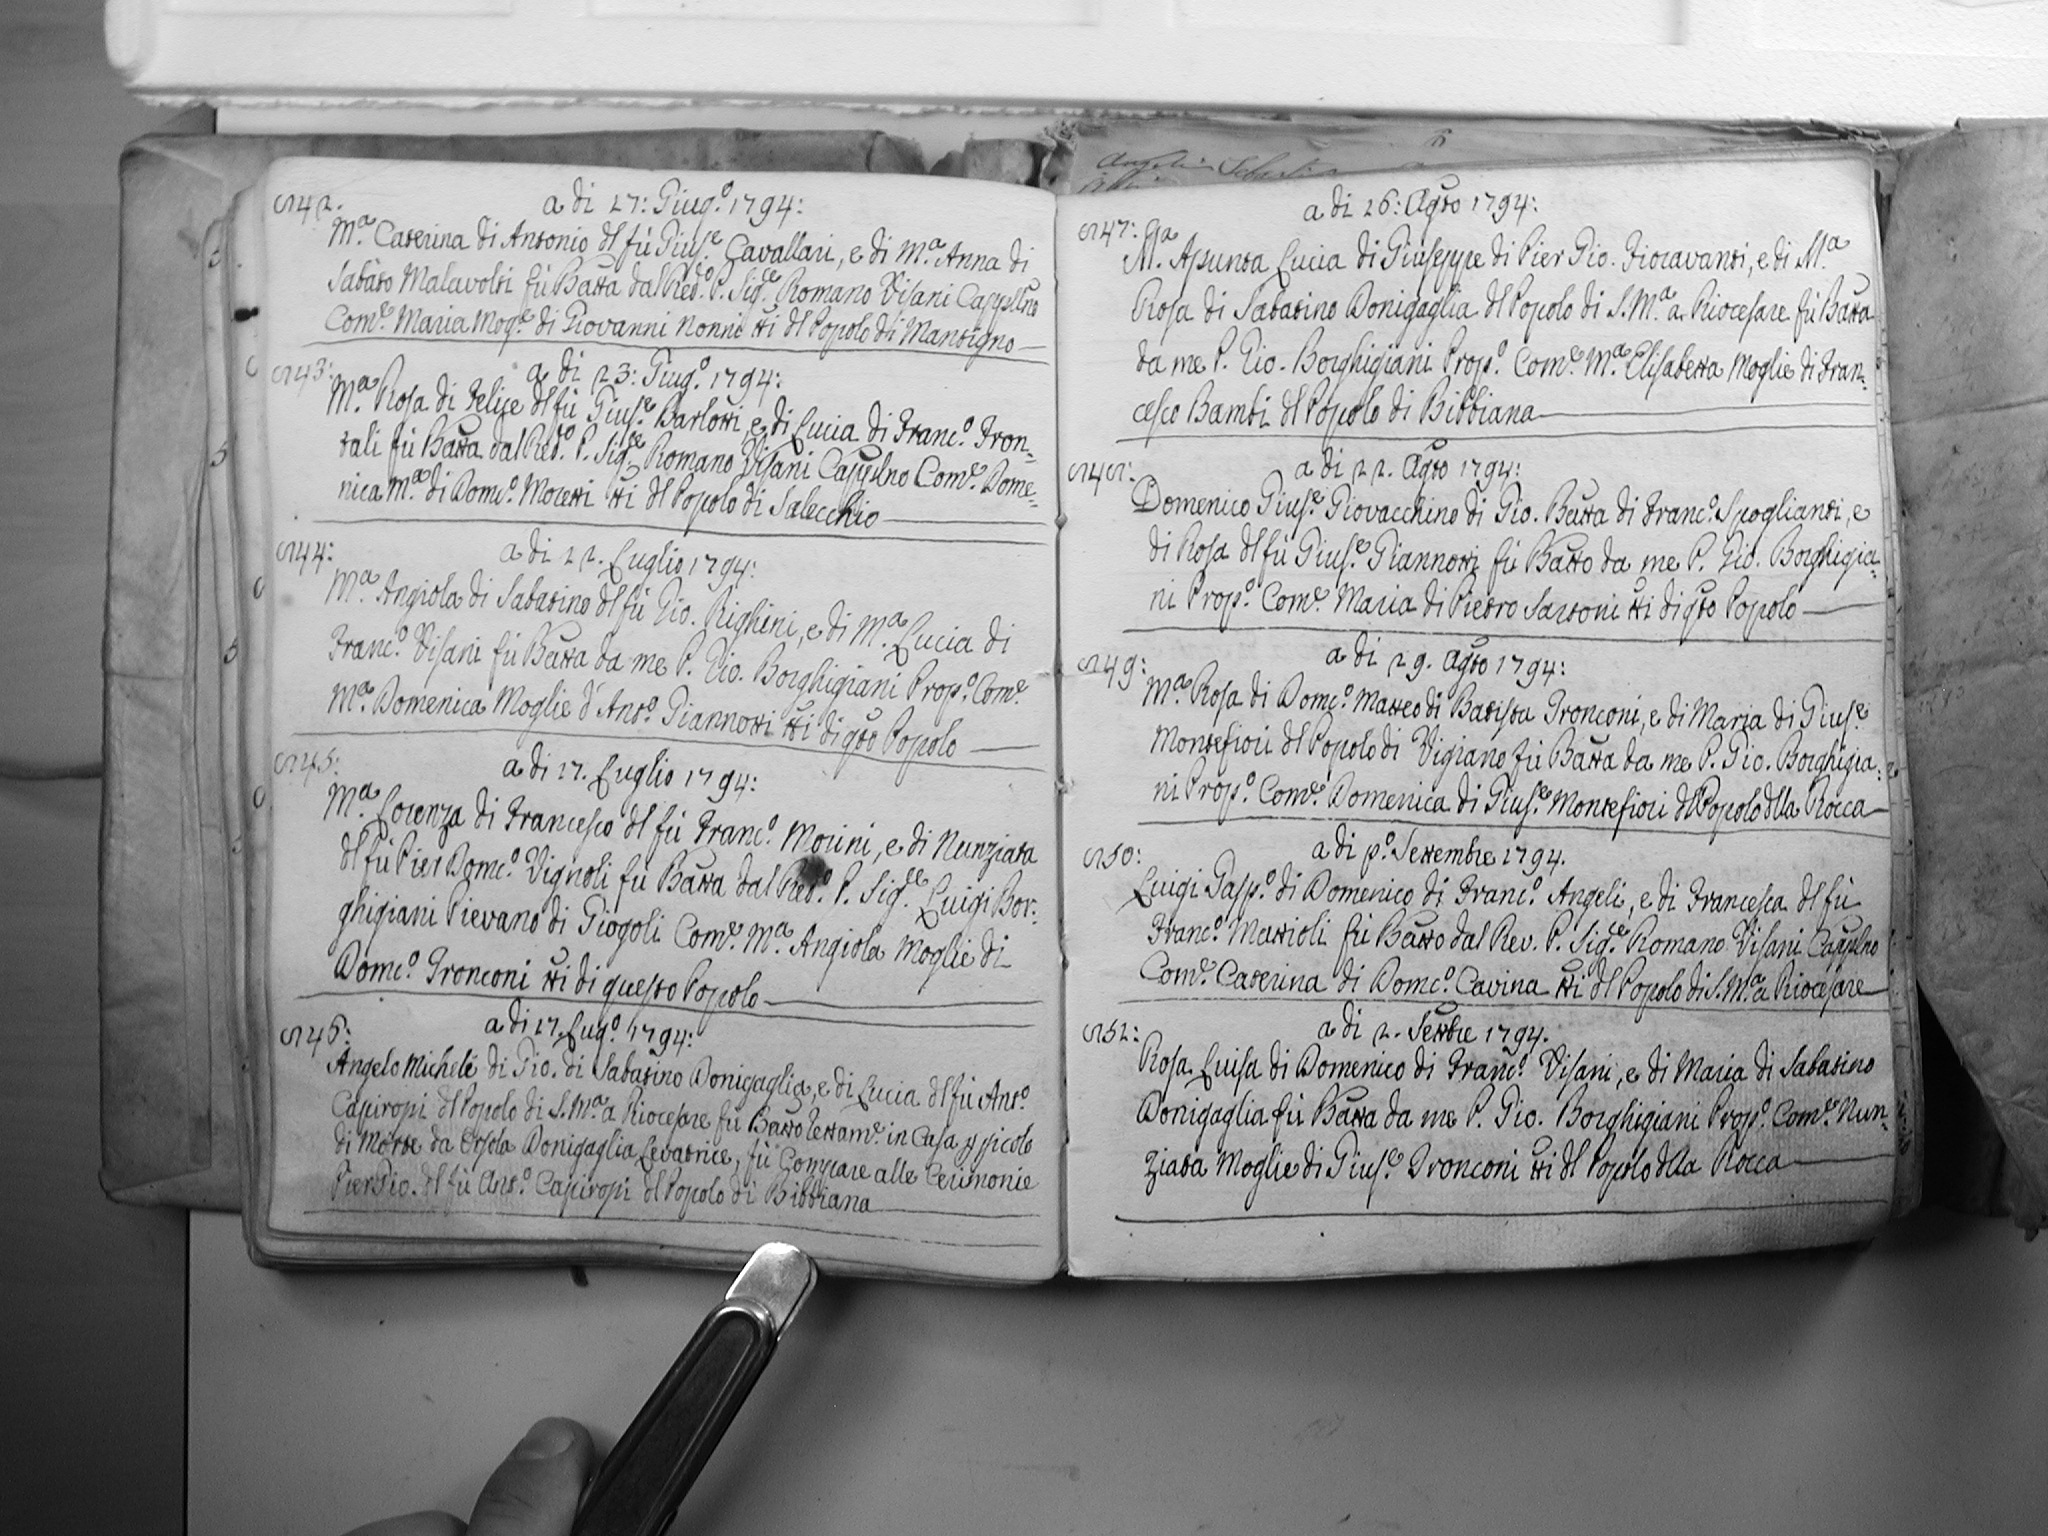 542.
a di 27: Giug.o 1794:
M.a Caterina di Antonio del fù Gius.e Cavallari, e di M.a Anna di
Sabato Malavolti fù Batta dal Red.o P. Sig.re Romano Visani Cappellno
Com.e Maria Mog.e di Giovanni Nonni tti del Popolo di Mantigno
543:
a di 23: Giug.o 1794:
M.a Rosa di Felice del fù Gius.e Barlotti, e di Lucia di Franc.o Fron=
tali fù Batta dal Red.o P. Sig.re Romano Visani Cappellno Com.e Dome=
nica M.a di Domc.o Moretti tti del Popolo di Salecchio
544:
a di 22. Luglio 1794:
M.a Angiola di Sabatino del fù Gio. Righini, e di M.a Lucia di
Franc.o Visani fù Batta da me P. Gio. Borghigiani Prop.o Com.e
M.a Domenica Moglie d'Ant.o Giannotti tti di qsto Popolo
545:
a di 27. Luglio 1794:
M.a Lorenza di Francesco del fù Franc.o Morini, e di Nunziata
del fù Pier Domc.o Vignoli fù Batta dal Red.o P. Sig.re Luigi Bor=
ghigiani Pievano di Giogoli Com.e M.a Angiola Moglie di
Domc.o Tronconi tti di questo Popolo
546:
a di 27. Lug.o 1794:
Angelo Michele di Gio. di Sabatino Donigaglia, e di Lucia del fù Ant.o
Capiropi del Popolo di S. M.a a Riocesare fù Batto in Casa p picolo
di Morte da Orsola Donigaglia Levatrice, fù Compare alle Cerimonie
Pier Gio. del fù Ant.o Capiropi del Popolo di Bibbiana
a di 26: Agto 1794:
547:
M.a Assunta Lucia di Giuseppe di Pier Gio. Fioravanti, e di M.a
Rosa di Sabatino Donigaglia del Popolo di S. M.a a Riocesare fù Batta
da me P. Gio. Borghigiani Prop.o Com.e M.a Elisabetta Moglie di Fran=
cesco Bambi del Popolo di Bibbiana
548:
a di 22. Agto 1794:
Domenico Gius.e Giovacchino di Gio. Batta di Franc.o Spoglianti, e
di Rosa del fù Gius.e Giannotti fù Batto da me P. Gio. Borghigia=
ni Prop.o Com.e Maria di Pietro Sartoni tti di qsto Popolo
549:
a di 29. Agto 1794:
M.a Rosa di Domc.o Matteo di Batista Tronconi, e di Maria di Gius.e
Montefiori del Popolo di Vigiano fù Batta da me P. Gio. Borghigia=
ni Prop.o Com.e Domenica di Gius.e Montefiori del Popolo della Rocca
550:
a di p.o Settembre 1794.
Luigi Gasp.o di Domenico di Franc.o Angeli, e di Francesca del fù
Franc.o Mattioli fù Batto dal Rev. P. Sig.re Romano Visani Cappllno
Com.e Caterina di Domc.o Cavina tti del Popolo di S. M.a a Riocesare
552:
a di 2. Settbre 1794.
Rosa Luisa di Domenico di Franc.o Visani, e di Maria di Sabatino
Donigaglia fù Batta da me P. Gio. Borghigiani Prop.o Com.e Nun=
ziata Moglie di Gius.e Tronconi tti del Popolo della Rocca